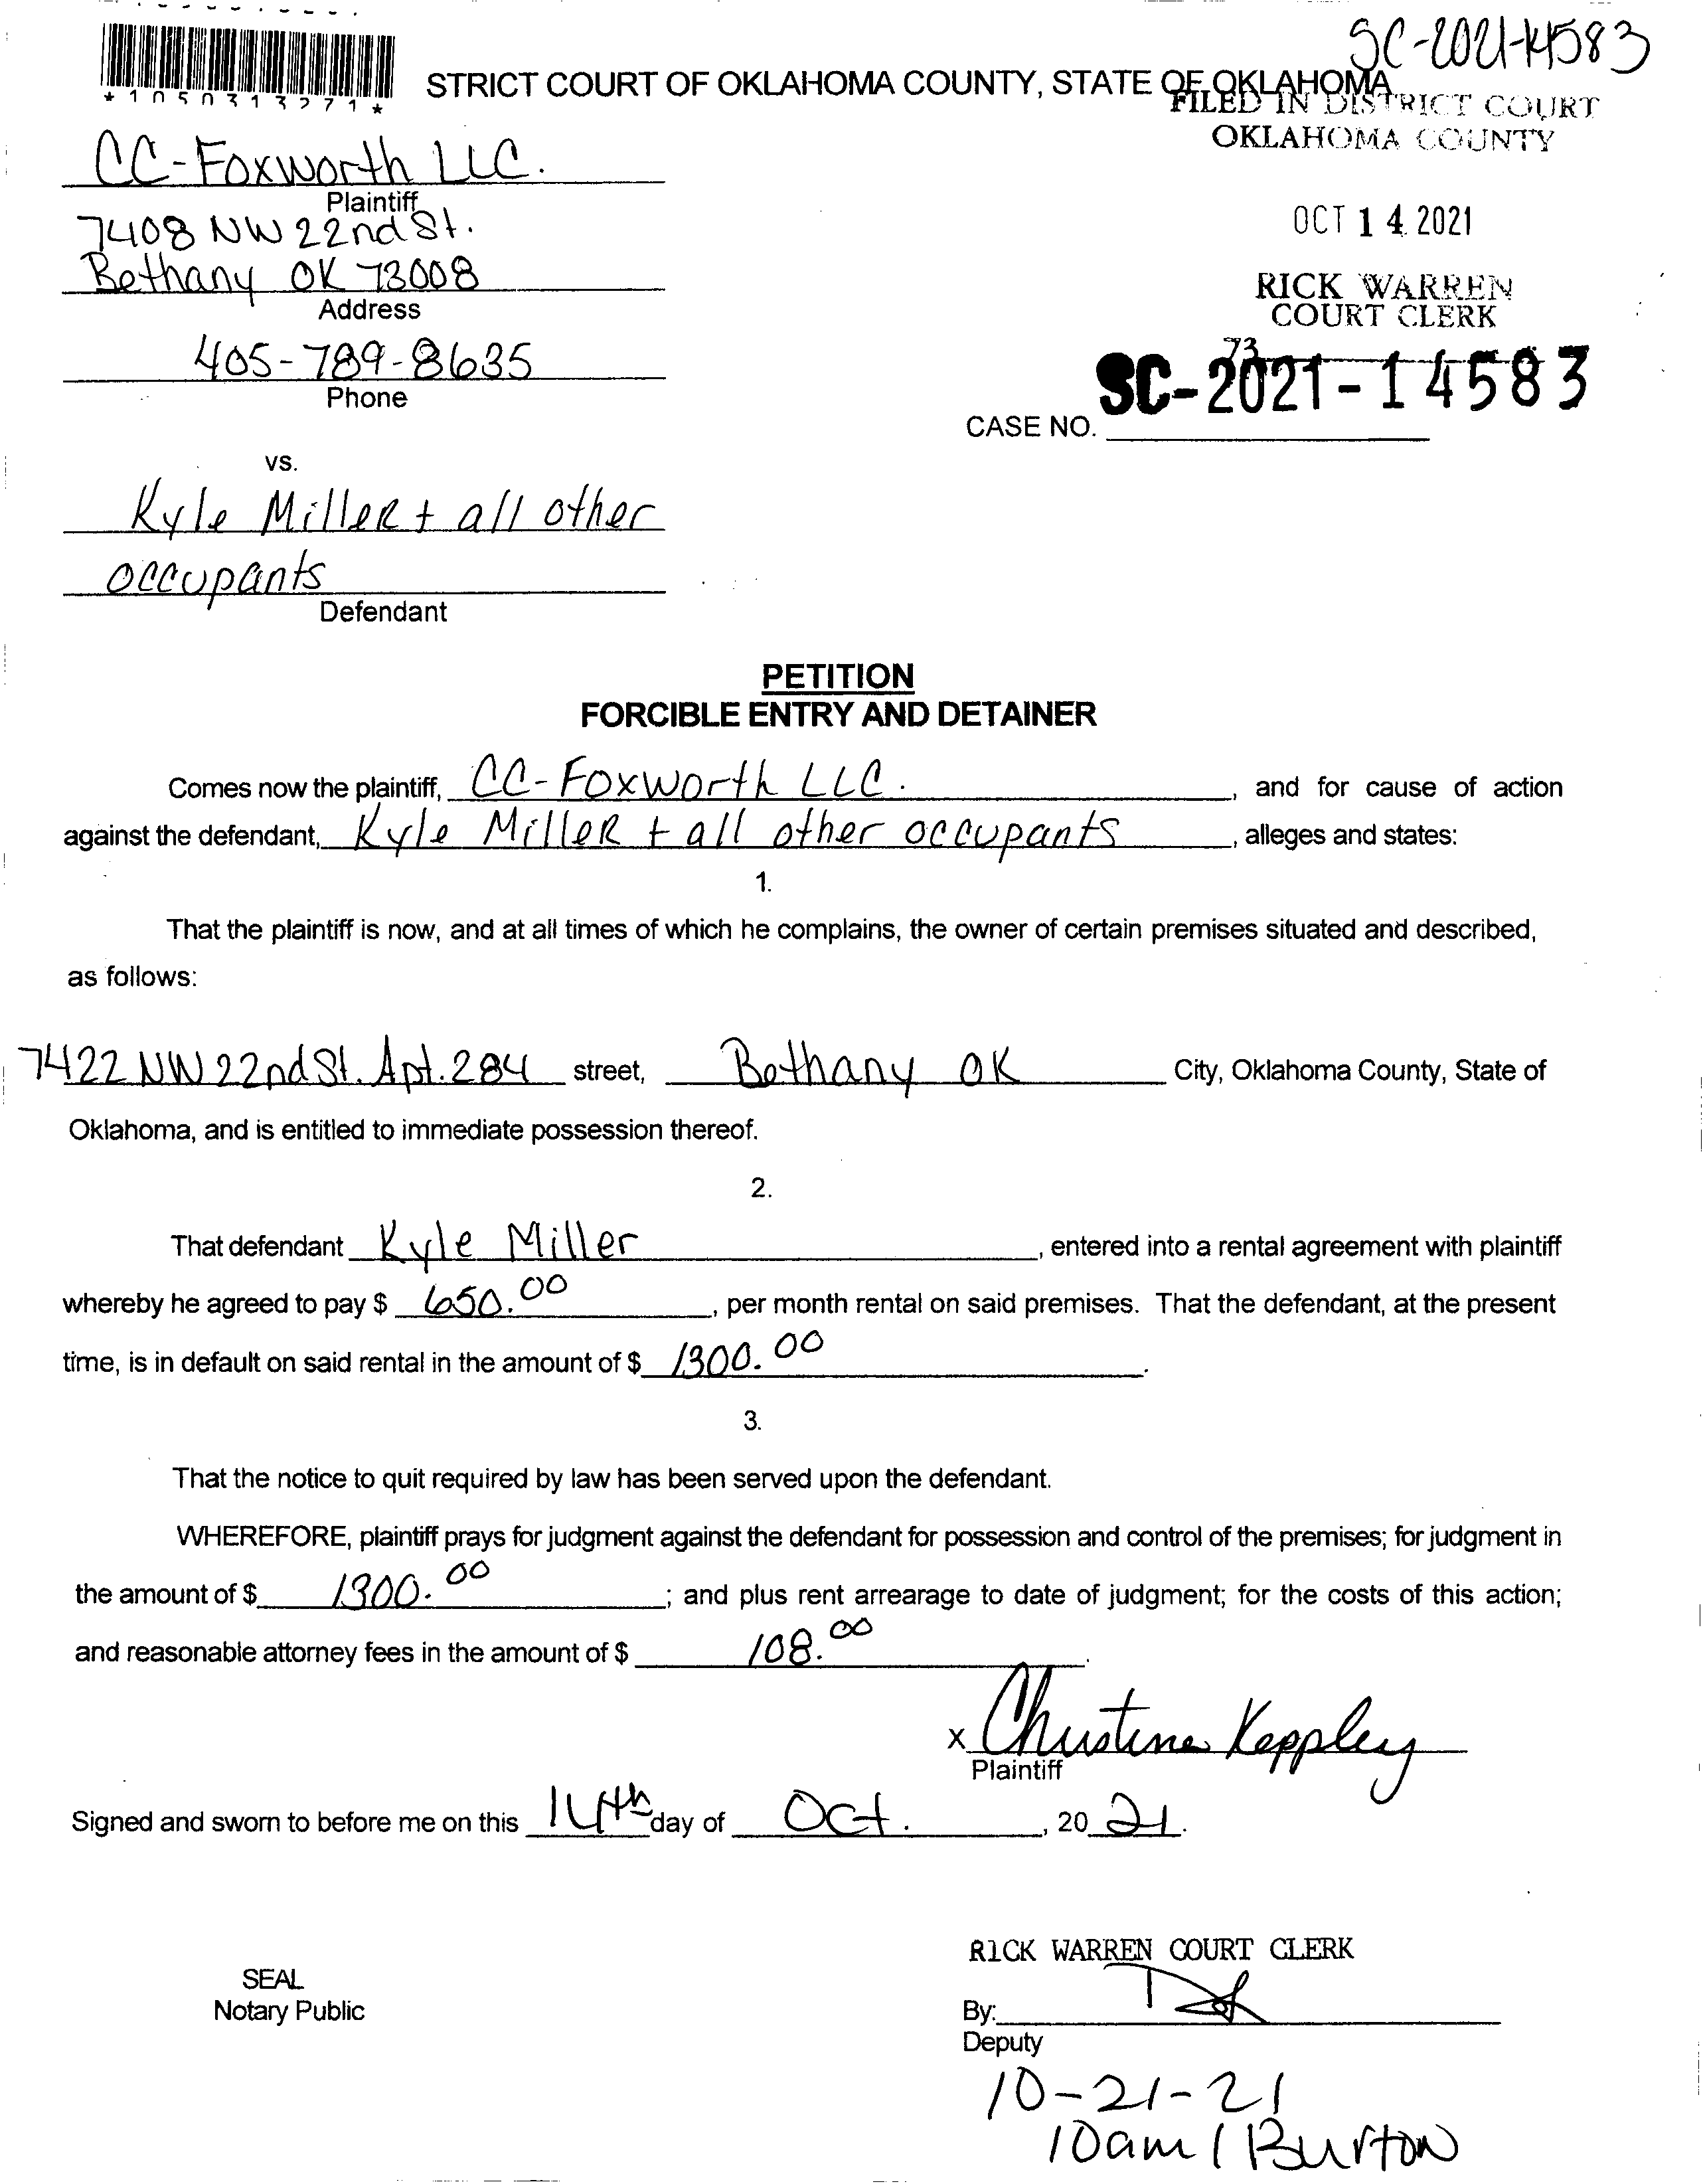 SC-2021-14583
*1050313271*
STRICT COURT OF OKLAHOMA COUNTY, STATE OF OKLAHOMA
FILED IN DISTRICT COURT
OKLAHOMA COUNTY
CC-Foxworth LLC.
Plaintiff
7408 NW 22nd St.
OCT 14 2021
Bethany OK 73008
Address
RICK WARREN
COURT CLERK
405-789-8635
Phone
73
SC-2021-14583
CASE NO.
vs.
Kyle Miller + all other
occupants
Defendant
PETITION
FORCIBLE ENTRY AND DETAINER
Comes now the plaintiff, CC-Foxworth LLC. , and for cause of action
against the defendant, Kyle Miller + all other occupants , alleges and states:
1.
That the plaintiff is now, and at all times of which he complains, the owner of certain premises situated and described,
as follows:
7422 NW 22nd St. Apt. 284 street, Bethany OK City, Oklahoma County, State of
Oklahoma, and is entitled to immediate possession thereof.
2.
That defendant Kyle Miller , entered into a rental agreement with plaintiff
whereby he agreed to pay $ 650.00 , per month rental on said premises. That the defendant, at the present
time, is in default on said rental in the amount of $ 1300.00 .
3.
That the notice to quit required by law has been served upon the defendant.
WHEREFORE, plaintiff prays for judgment against the defendant for possession and control of the premises; for judgment in
the amount of $ 1300.00 ; and plus rent arrearage to date of judgment; for the costs of this action;
and reasonable attorney fees in the amount of $ 108.00 .
X Christine Keppley
Plaintiff
Signed and sworn to before me on this 14th day of Oct. , 20 21.
RICK WARREN COURT CLERK
SEAL
Notary Public
By:
Deputy
10-21-21
10am / Burton